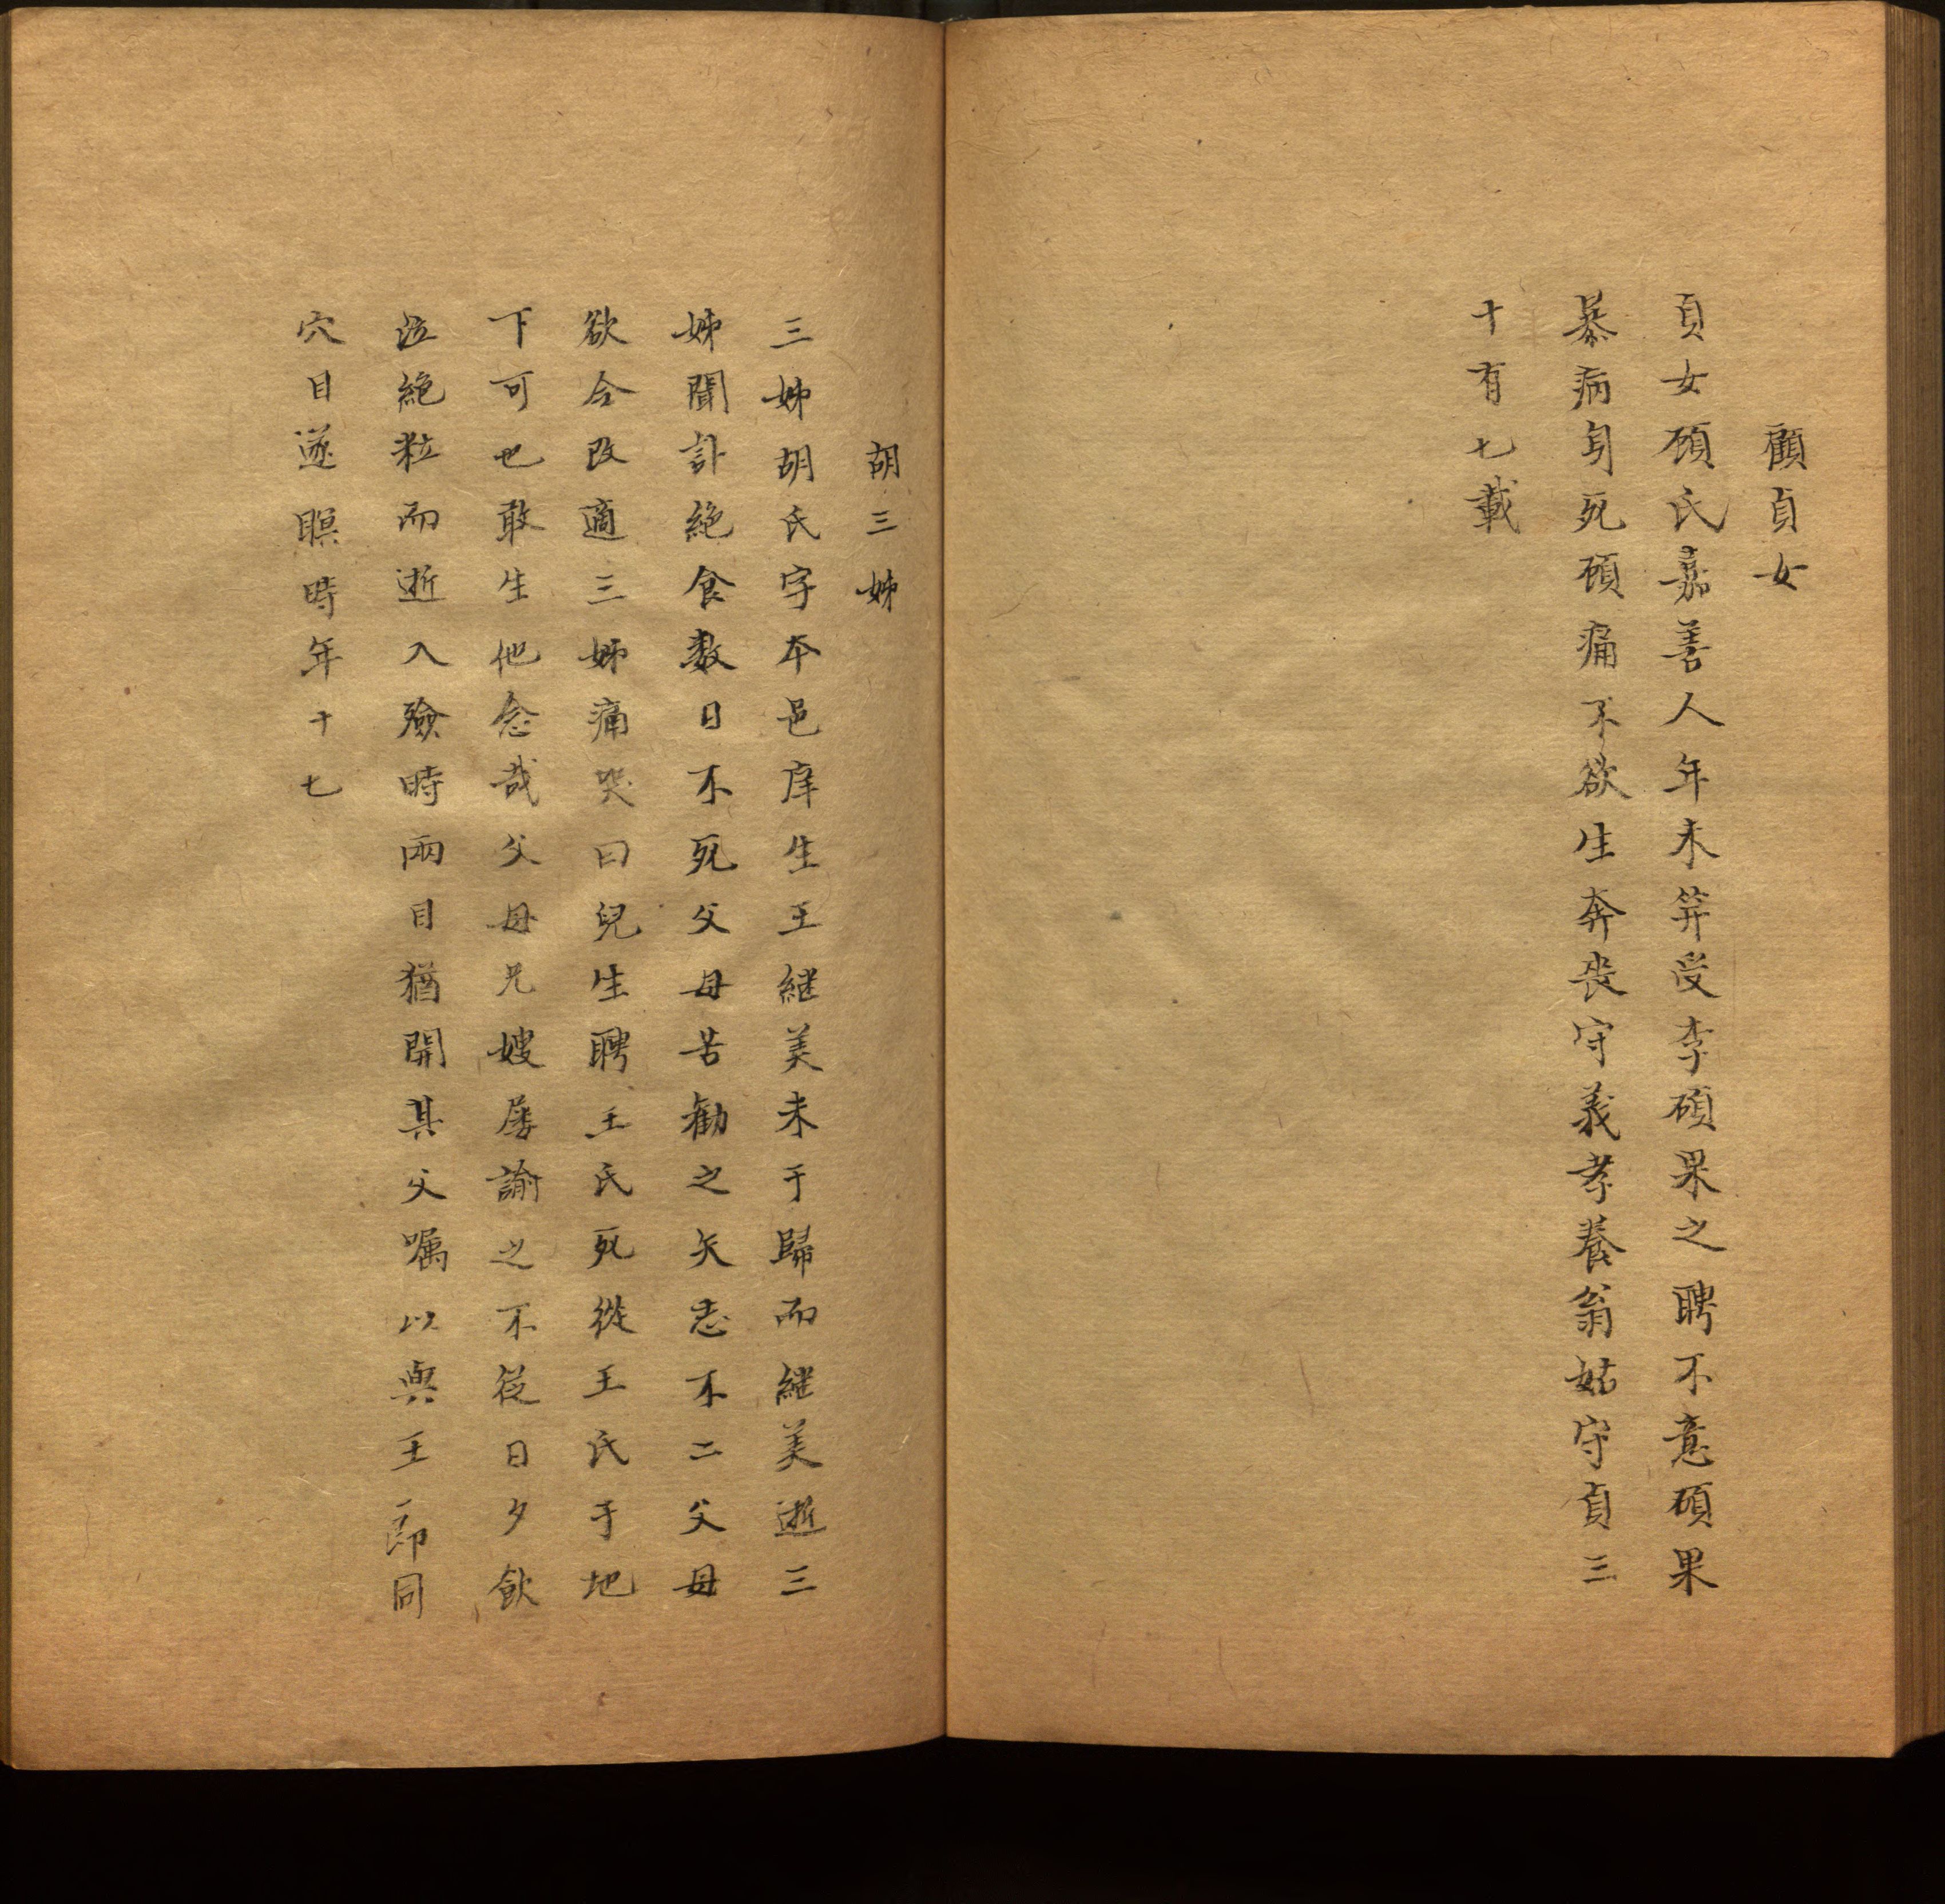 顧貞女
貞女顧氏嘉善人年未笄受李碩果之聘不意碩果
暴病身死顧痛不欲生奔喪守義孝養翁姑守貞三
十有七載
胡三姊
三姊胡氏字本邑庠生王継美未于歸而継美逝三
姊聞訃絶食数日不死父母苦勸之矢志不二父母
欲令改適三姊痛哭曰兒生聘王氏死從王氏于地
下可也敢生他念哉父母兄嫂屡諭之不從日夕飲
泣絶粒而逝入殮時兩目猶開其父嘱以與王郎同
穴目遂瞑時年十七